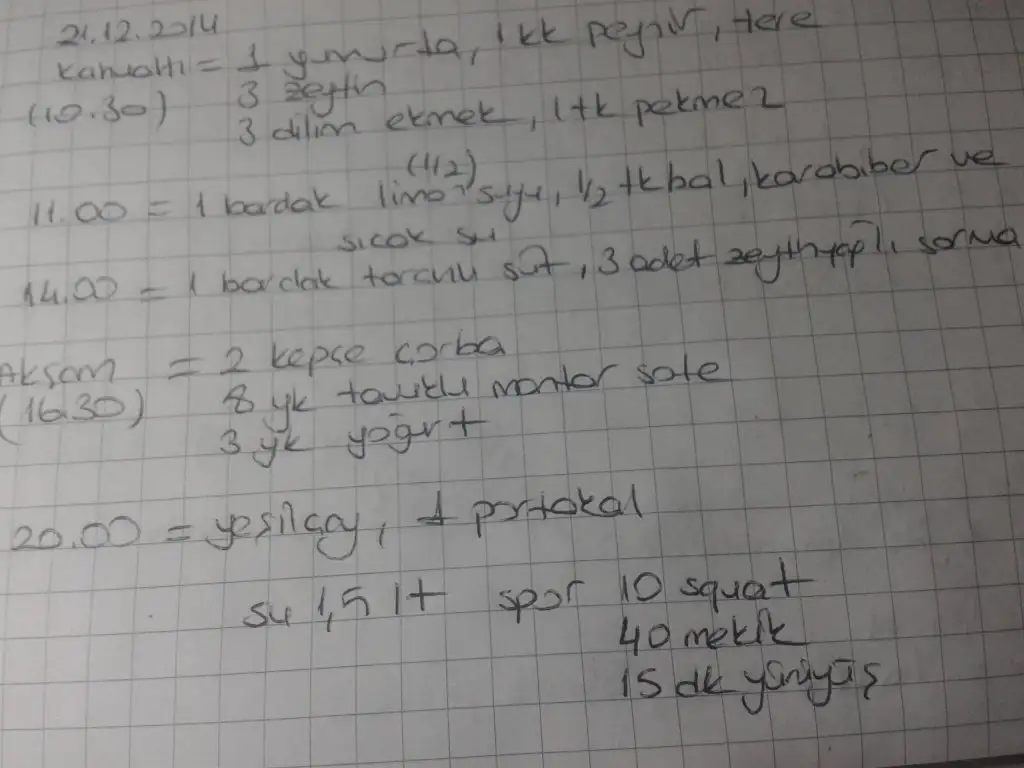 21.12.2014
Kahvaltı = 1 yumurta, 1 kk peynir, tere
(10.30) 3 zeytin
3 dilim ekmek, 1 tk pekmez
(1/2)
11.00 = 1 bardak limo suyu, 1/2 tk bal, karabiber ve
sıcak su
14.00 = 1 bardak tarçınlı süt, 3 adet zeytinyağlı sarma
Akşam = 2 kepçe çorba
(16.30) 8 yk tavuklu mantar sote
3 yk yoğurt
20.00 = yeşilçay, 1 portakal
su 1,5 lt spor 10 squat
40 mekik
15 dk yürüyüş